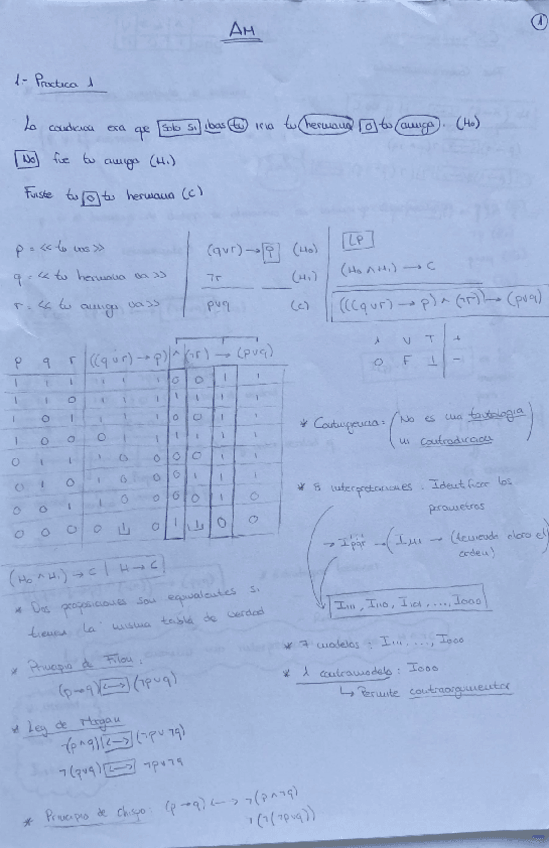 1
AH
1.- Practica 1
La condicion era que solo si ibas tu iria tu hermana o tu amiga. (H₀)
No fue tu amiga (H₁)
Fuiste tu o tu hermana (C)
p = << tu vas >>
q = << tu hermana va >>
r = << tu amiga va >>
(q∨r) → p (H₀)
¬r (H₁)
p∨q (C)
LP
(H₀ ∧ H₁) → C
(((q∨r) → p) ∧ (¬r)) → (p∨q)
1 V T +
0 F ⊥ −
p q r ((q∨r) → p) ∧ (¬r) → (p∨q)
1 1 1 1 1 1 0 0 1 1
1 1 0 1 1 1 1 1 1 1
1 0 1 1 1 1 0 0 1 1
1 0 0 0 1 1 1 1 1 1
0 1 1 1 0 0 0 0 1 1
0 1 0 1 0 0 0 1 1 1
0 0 1 1 0 0 0 0 1 0
0 0 0 0 1 0 1 1 0 0
* Contingencia: (No es una tautologia ni contradiccion)
* 8 interpretaciones. Identificar los parametros
→ (I₁₁₁ → (teniendo claro el orden)
I₁₁₁, I₁₁₀, I₁₀₁, ...., I₀₀₀
* 7 modelos: I₁₁₁ ....,
* 1 contramodelo: I₀₀₀
↳ Permite contraargumentar
(H₀ ∧ H₁) → C | H → C
* Dos proposiciones son equivalentes si
tienen la misma tabla de verdad
* Principio de Filon:
(p→q) <-> (¬p∨q)
* Ley de Morgan
¬(p∧q) <-> (¬p∨¬q)
¬(p∨q) <-> ¬p∨¬q
* Principio de : (p→q) <-> ¬(p∧¬q)
¬(¬(¬p∨q))